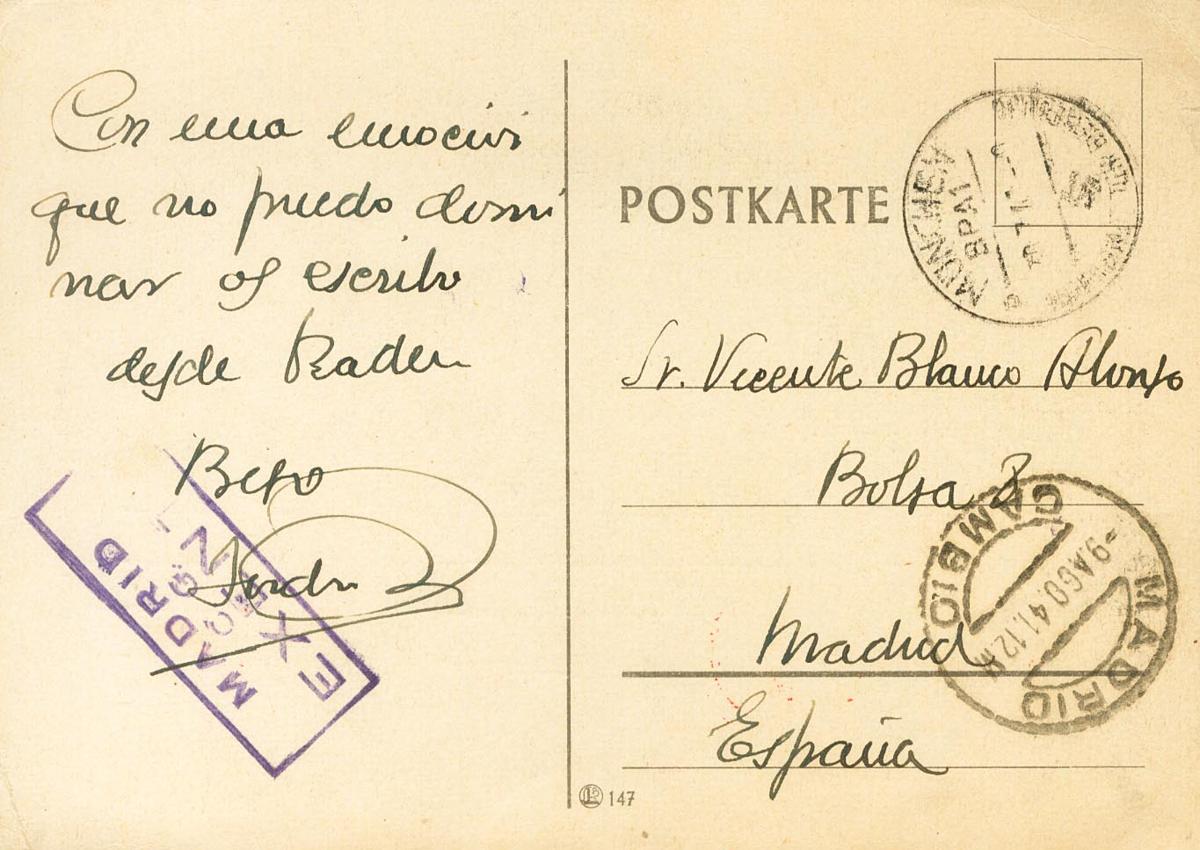 Con una emoción
que no puedo domi
nar os escribo
desde Baden
Beso
MADRID
EX
POSTKARTE
MÜNCHEN
BPA1
Sr. Vicente Blanco Alonso
Bolsa 3
Madrid
España
CAMBIO
-9 AGO 41. 12
MADRID
147